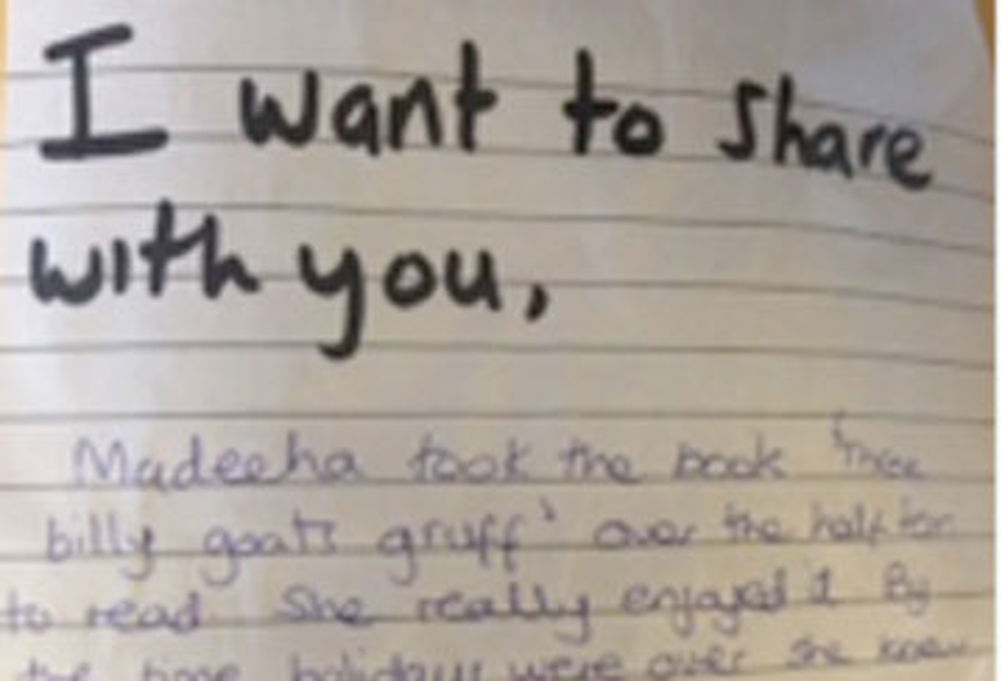 I want to share
with you,
Madeeha took the book 'Three
billy goats gruff' over the half ter
to read. She really enjoyed it By
the time holidays were over she knew